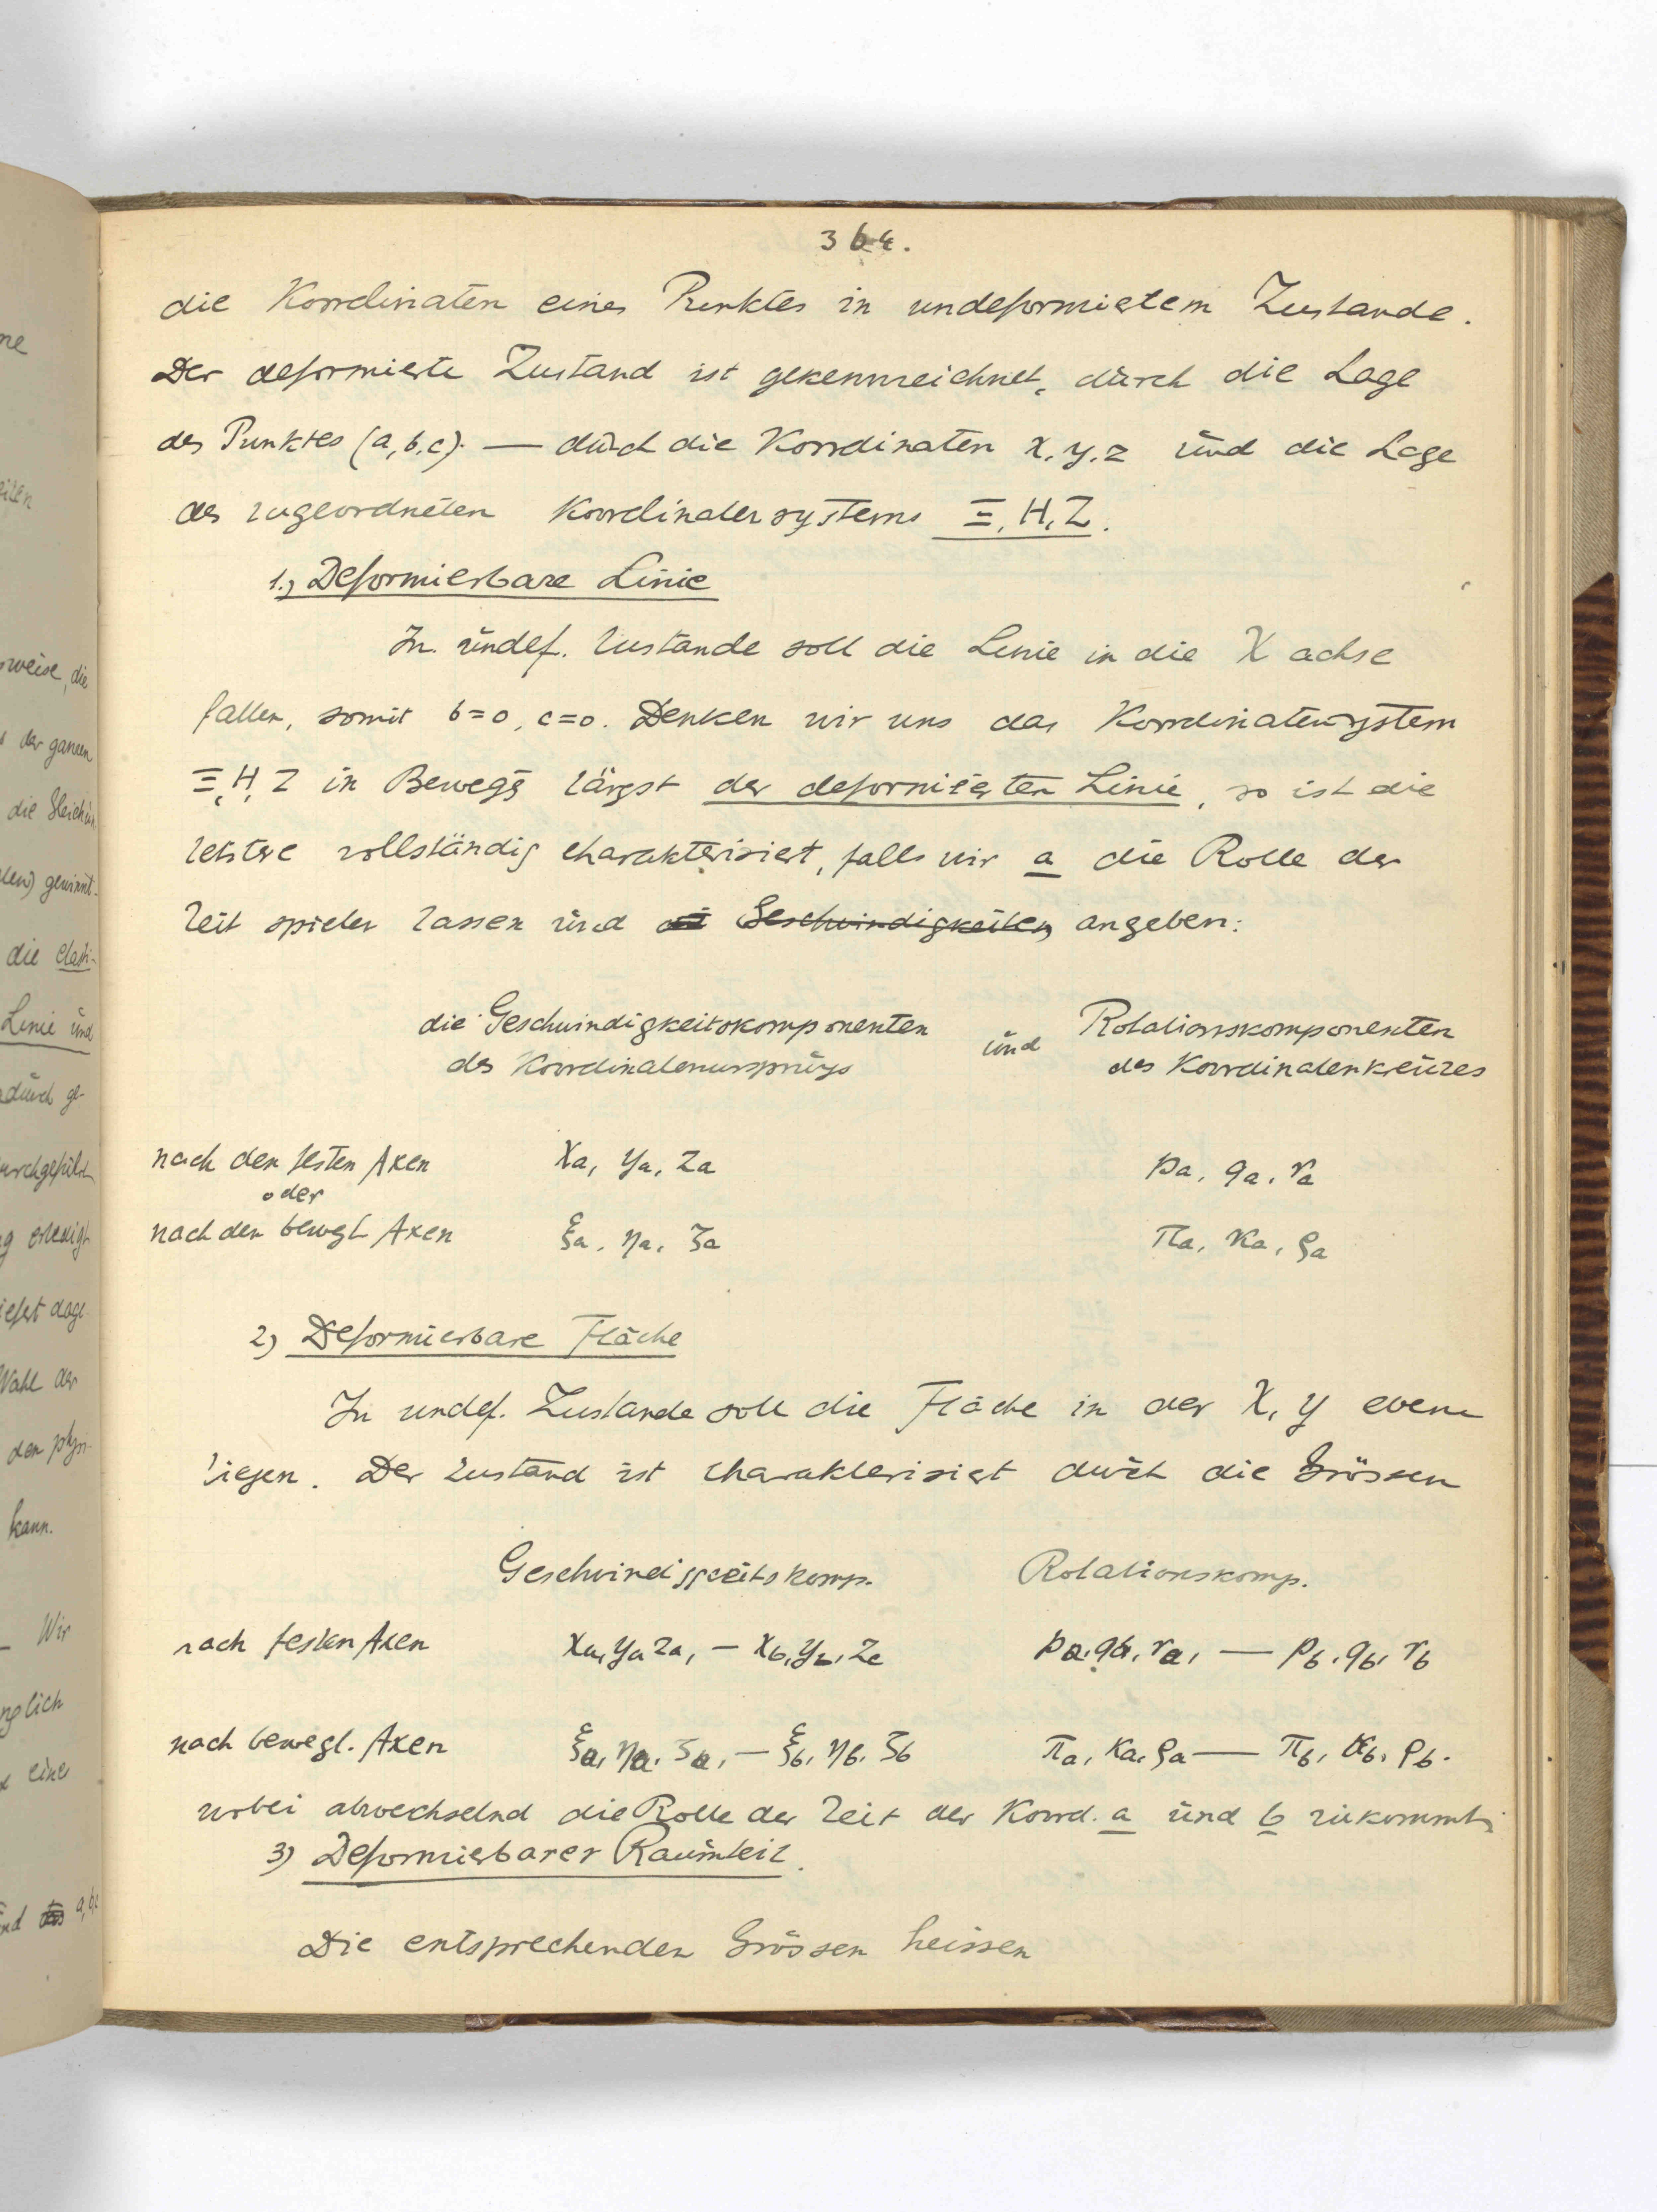 364.
die Koordinaten eines Punktes in undeformiertem Zustande.
Der deformierte Zustand ist gekennzeichnet, durch die Lage
des Punktes (a, b, c). — durch die Koordinaten x, y, z und die Lage
des zugeordneten Koordinatensystems Ξ, H, Z.
1.) Deformierbare Linie
In undef. Zustande soll die Linie in die X achse
fallen, somit b=0, c=0. Denken wir uns das Koordinatensystem
Ξ, H, Z in Bewegg längst der deformierten Linie, so ist die
letztere vollständig charakterisiert, falls wir a die Rolle der
Zeit spielen lassen und Geschwindigkeiten angeben:
die Geschwindigkeitskomponenten und Rotationskomponenten
des Koordinatenursprungs des Koordinatenkreuzes
nach den festen Axen xa, ya, za pa, qa, ra
oder
nach den bewegl Axen ξa, ηa, ζa πa, κa, ρa
2) Deformierbare Fläche
In undef. Zustande soll die Fläche in der X, Y ebene
liegen. Der Zustand ist charakterisiert durch die Grössen
Geschwindigkeitskomp. Rotationskomp.
nach festen Axen xa, ya za, — xb, yb, zc pa, qa, ra, — pb, qb, rb
nach bewegl. Axen ξa, ηa, ζa, — ξb, ηb, ζb πa, κa, ρa — πb, κb, ρb.
wobei abwechselnd die Rolle der Zeit der Koord. a und b zukommt;
3) Deformierbarer Raumteil.
Die entsprechenden Grössen heissen
ne
weise, die
der ganzen
gewinnt.
die
Linie und
Wahl der
den physi-
kann.
Wir
eine